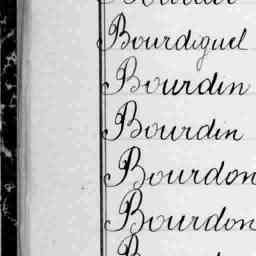 Bourdiguel
Bourdin
Bourdin
Bourdon
Bourdon